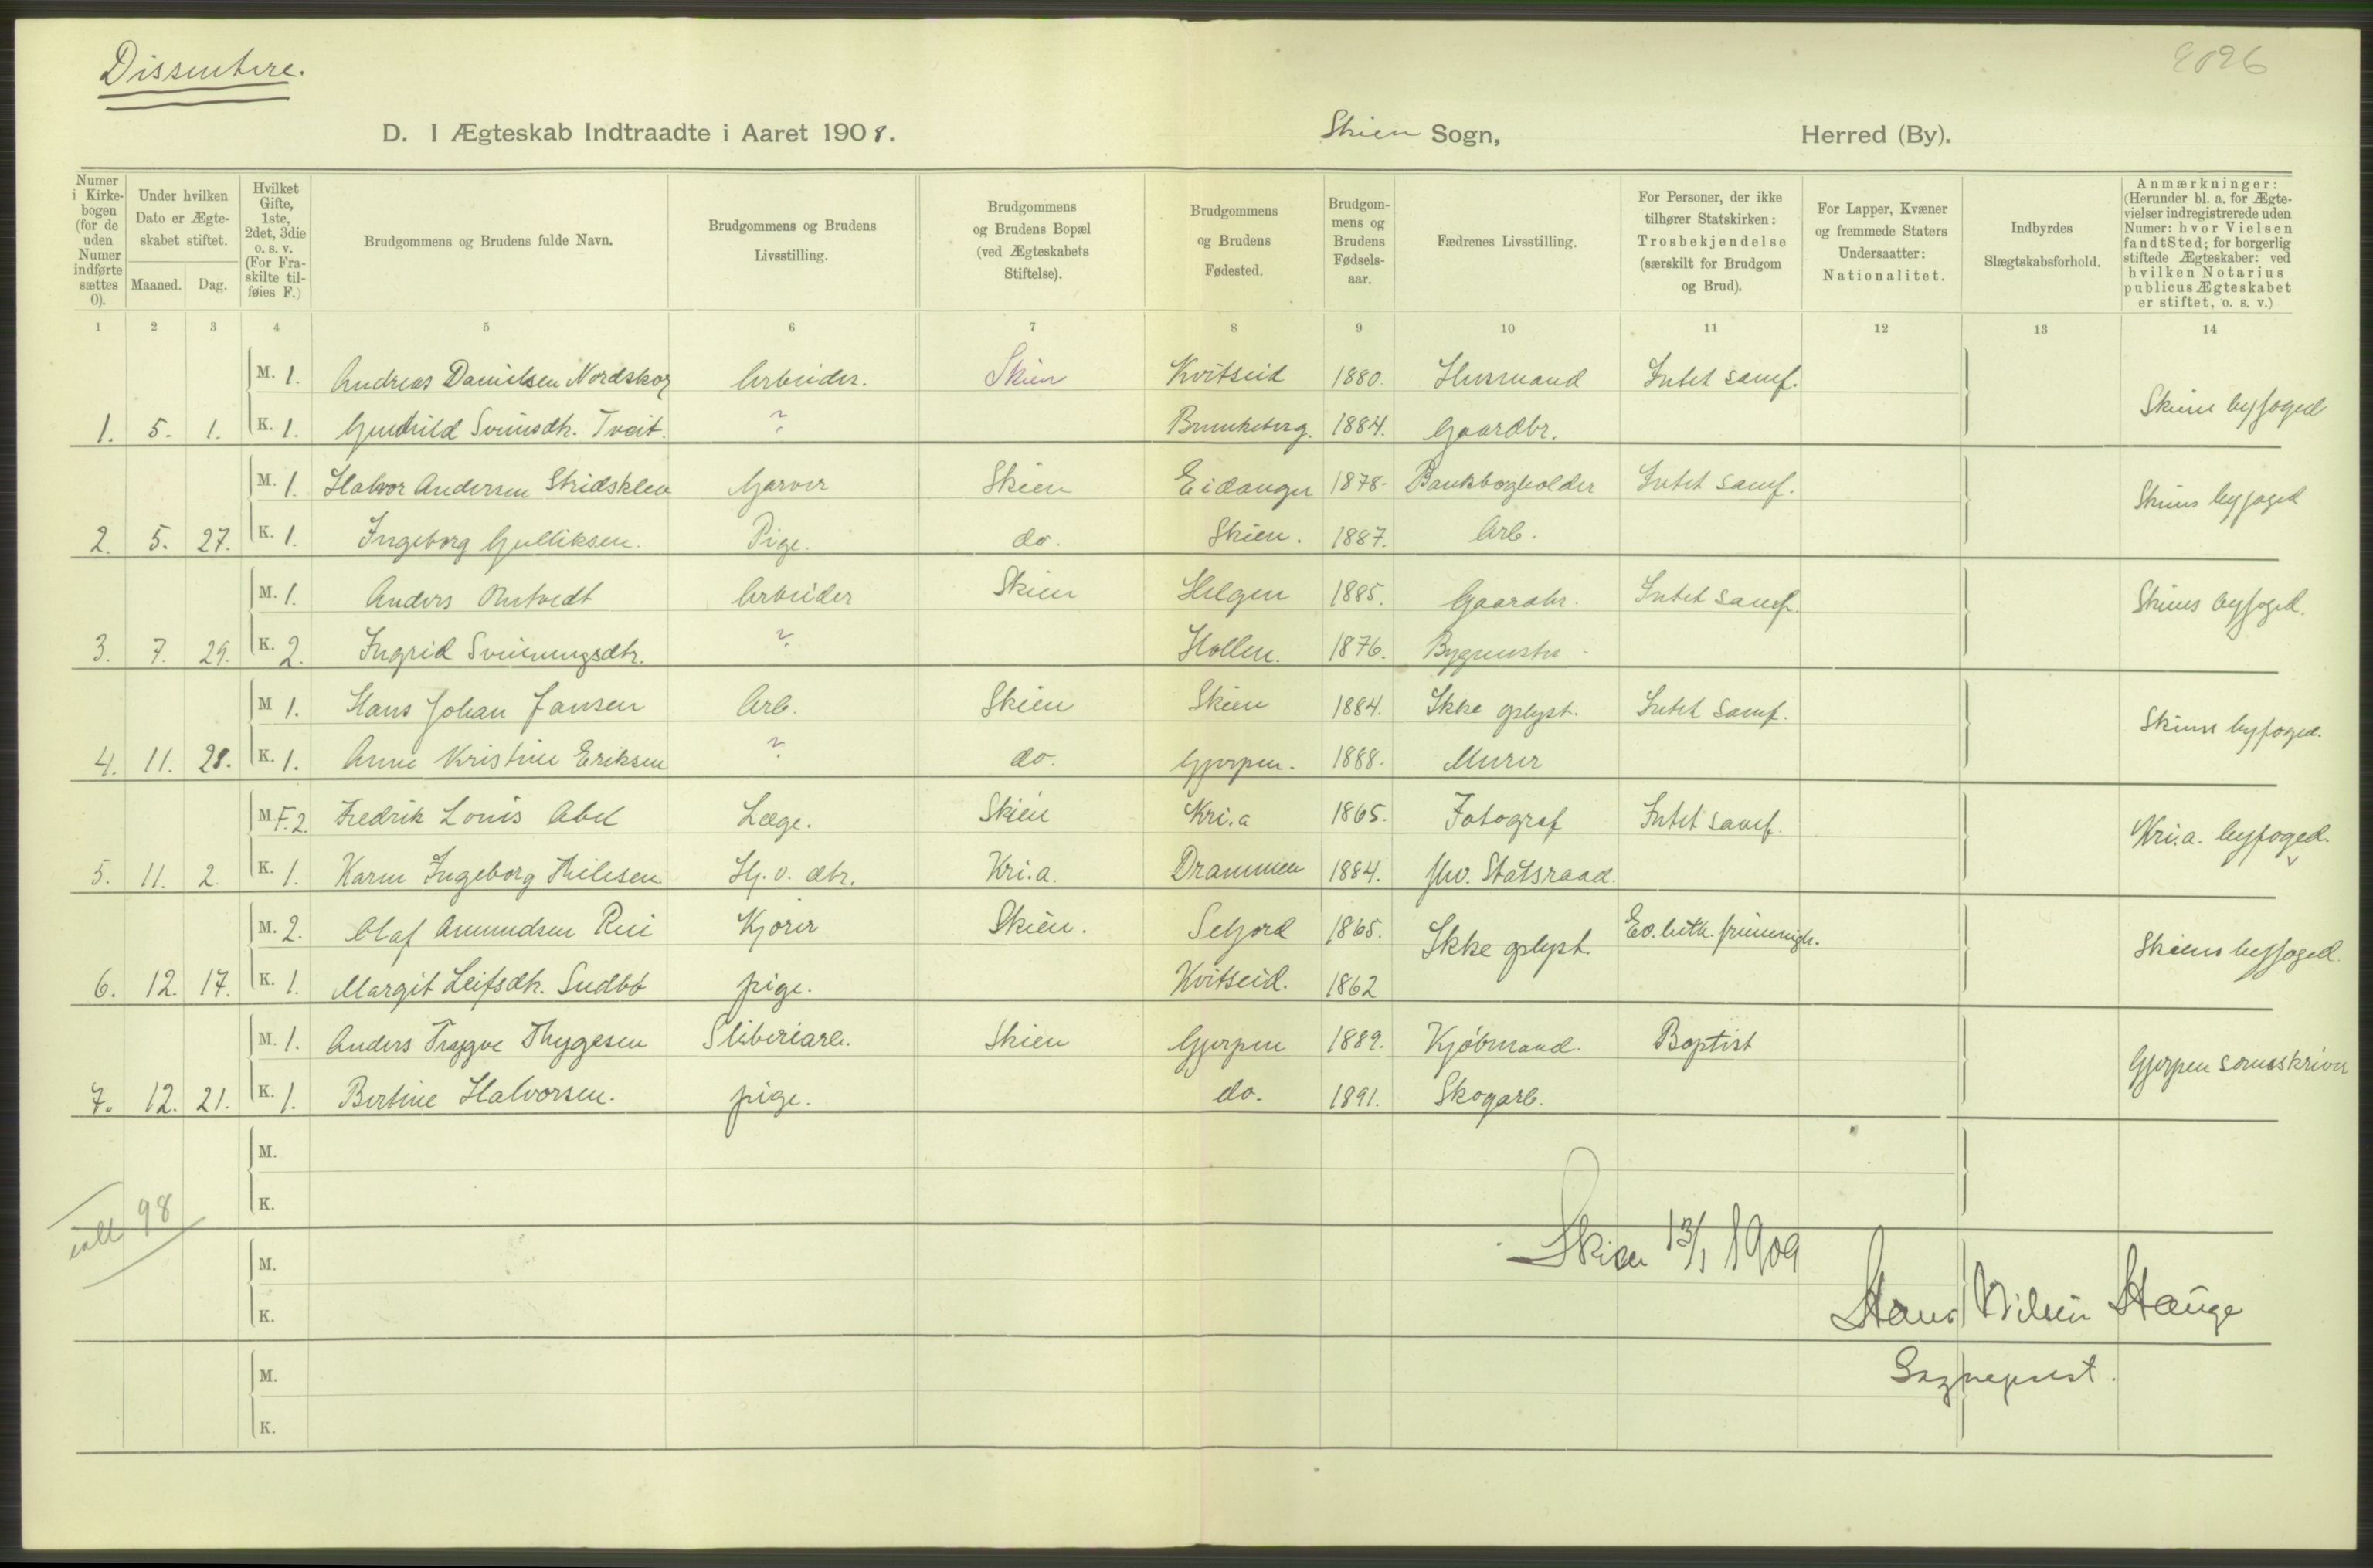 Dissentere.
9096
D. I Ægteskab Indtraadte i Aaret 1908.
Skien Sogn,
Herred (By).
Numer i Kirkebogen (for de uden Numer indførte sættes 0).
Under hvilken Dato er Ægteskabet stiftet.
Maaned. Dag.
Hvilket Gifte, 1ste, 2det, 3die o. s. v. (For Fraskilte tilføies F.)
Brudgommens og Brudens fulde Navn.
Brudgommens og Brudens Livsstilling.
Brudgommens og Brudens Bopæl (ved Ægteskabets Stiftelse).
Brudgommens og Brudens Fødested.
Brudgommens og Brudens Fødselsaar.
Fædrenes Livsstilling.
For Personer, der ikke tilhører Statskirken: Trosbekjendelse (særskilt for Brudgom og Brud).
For Lapper, Kvæner og fremmede Staters Undersaatter: Nationalitet.
Indbyrdes Slægtskabsforhold.
Anmærkninger: (Herunder bl. a. for Ægtevielser indregistrerede uden Numer: hvor Vielsen fandt Sted; for borgerlig stiftede Ægteskaber: ved hvilken Notarius publicus Ægteskabet er stiftet, o. s. v.)
1 2 3 4 5 6 7 8 9 10 11 12 13 14
M. 1. Andreas Danielsen Nordskog Arbeider. Skien Kvitseid 1880. Husmand Intet samf.
Skiens byfoged
1. 5. 1. K. 1. Gunhild Sveinsdtr. Tveit. ? Brunkeberg. 1884. Gaardbr.
M. 1. Halvor Andersen Stridsklev Garver Skien Eidanger 1878. Bankbogholder Intet samf.
Skiens byfoged
2. 5. 27. K. 1. Ingeborg Gulliksen. Pige. do. Skien. 1887. Arb.
M. 1. Anders Ontvedt Arbeider Skien Helgen 1885. Gaardbr. Intet samf.
Skiens byfoged.
3. 7. 29. K. 2. Ingrid Sveinungsdtr. ? Hollen. 1876. Bygmester
M 1. Hans Johan Jansen Arb. Skien Skien 1884. Ikke oplyst. Intet samf.
Skiens byfoged.
4. 11. 28. K. 1. Anne Kristine Eriksen ? do. Gjerpen. 1888. Murer
M. F. 2. Fredrik Louis Abel Læge. Skien Kri.a 1865. Fotograf Intet samf.
Kri.a. byfoged.
5. 11. 2. K. 1. Karen Ingeborg Thilesen Hj. v. dtr. Kri.a. Drammen 1884. fhv. Statsraad.
M. 2. Olaf Amundsen Rui Kjører Skien. Seljord 1865. Ikke oplyst. Ev. luth. frimenigh.
Skiens byfoged.
6. 12. 17. K. 1. Margit Leifsdtr. Sudbø pige. Kvitseid. 1862
M. 1. Anders Tryggve Thygesen Sliberiarb. Skien Gjerpen 1889. Kjøbmand. Baptist
Gjerpen sorenskriver
7. 12. 21. K. 1. Bertine Halvorsen. pige. do. 1891. Skogarb.
M.
K.
ialt 98
M.
K.
M.
K.
Skien 13/1 1909
Hans Nilsen Hauge
Sogneprest.